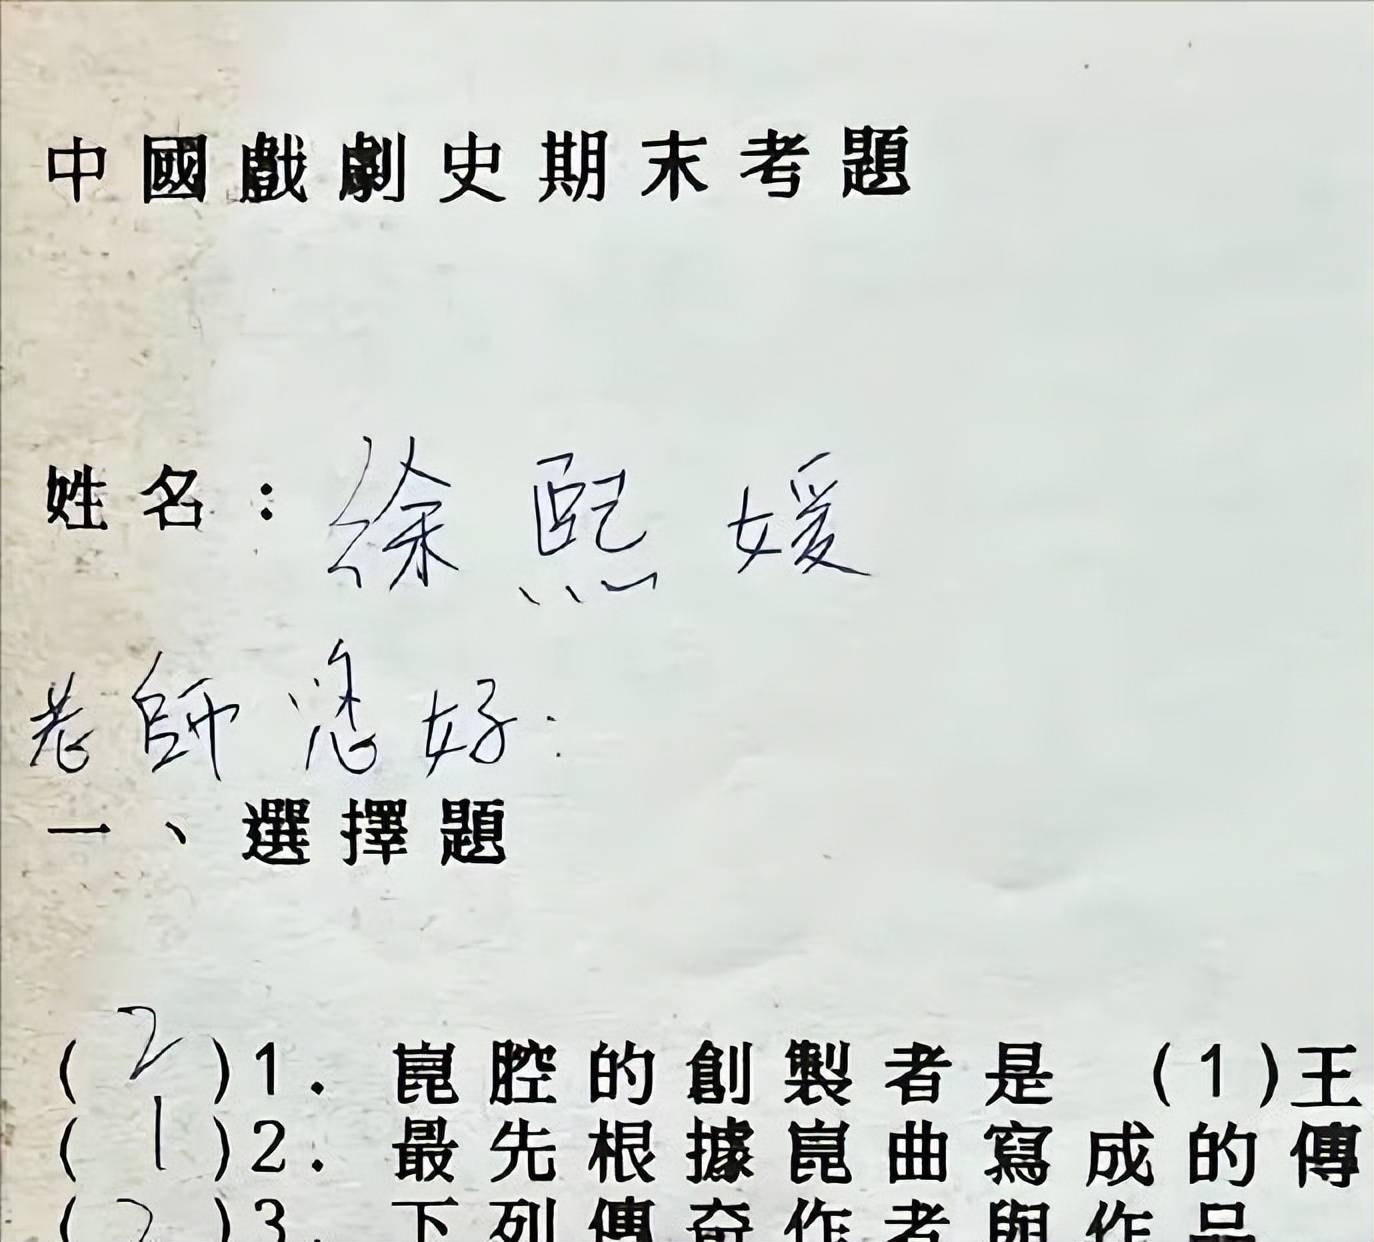 中國戲劇史期末考題
姓名：徐熙媛
老師您好：
一、選擇題
(2)1. 崑腔的創製者是 (1)王
(1)2. 最先根據崑曲寫成的傳
(2)3. 下列傳奇作者與作品